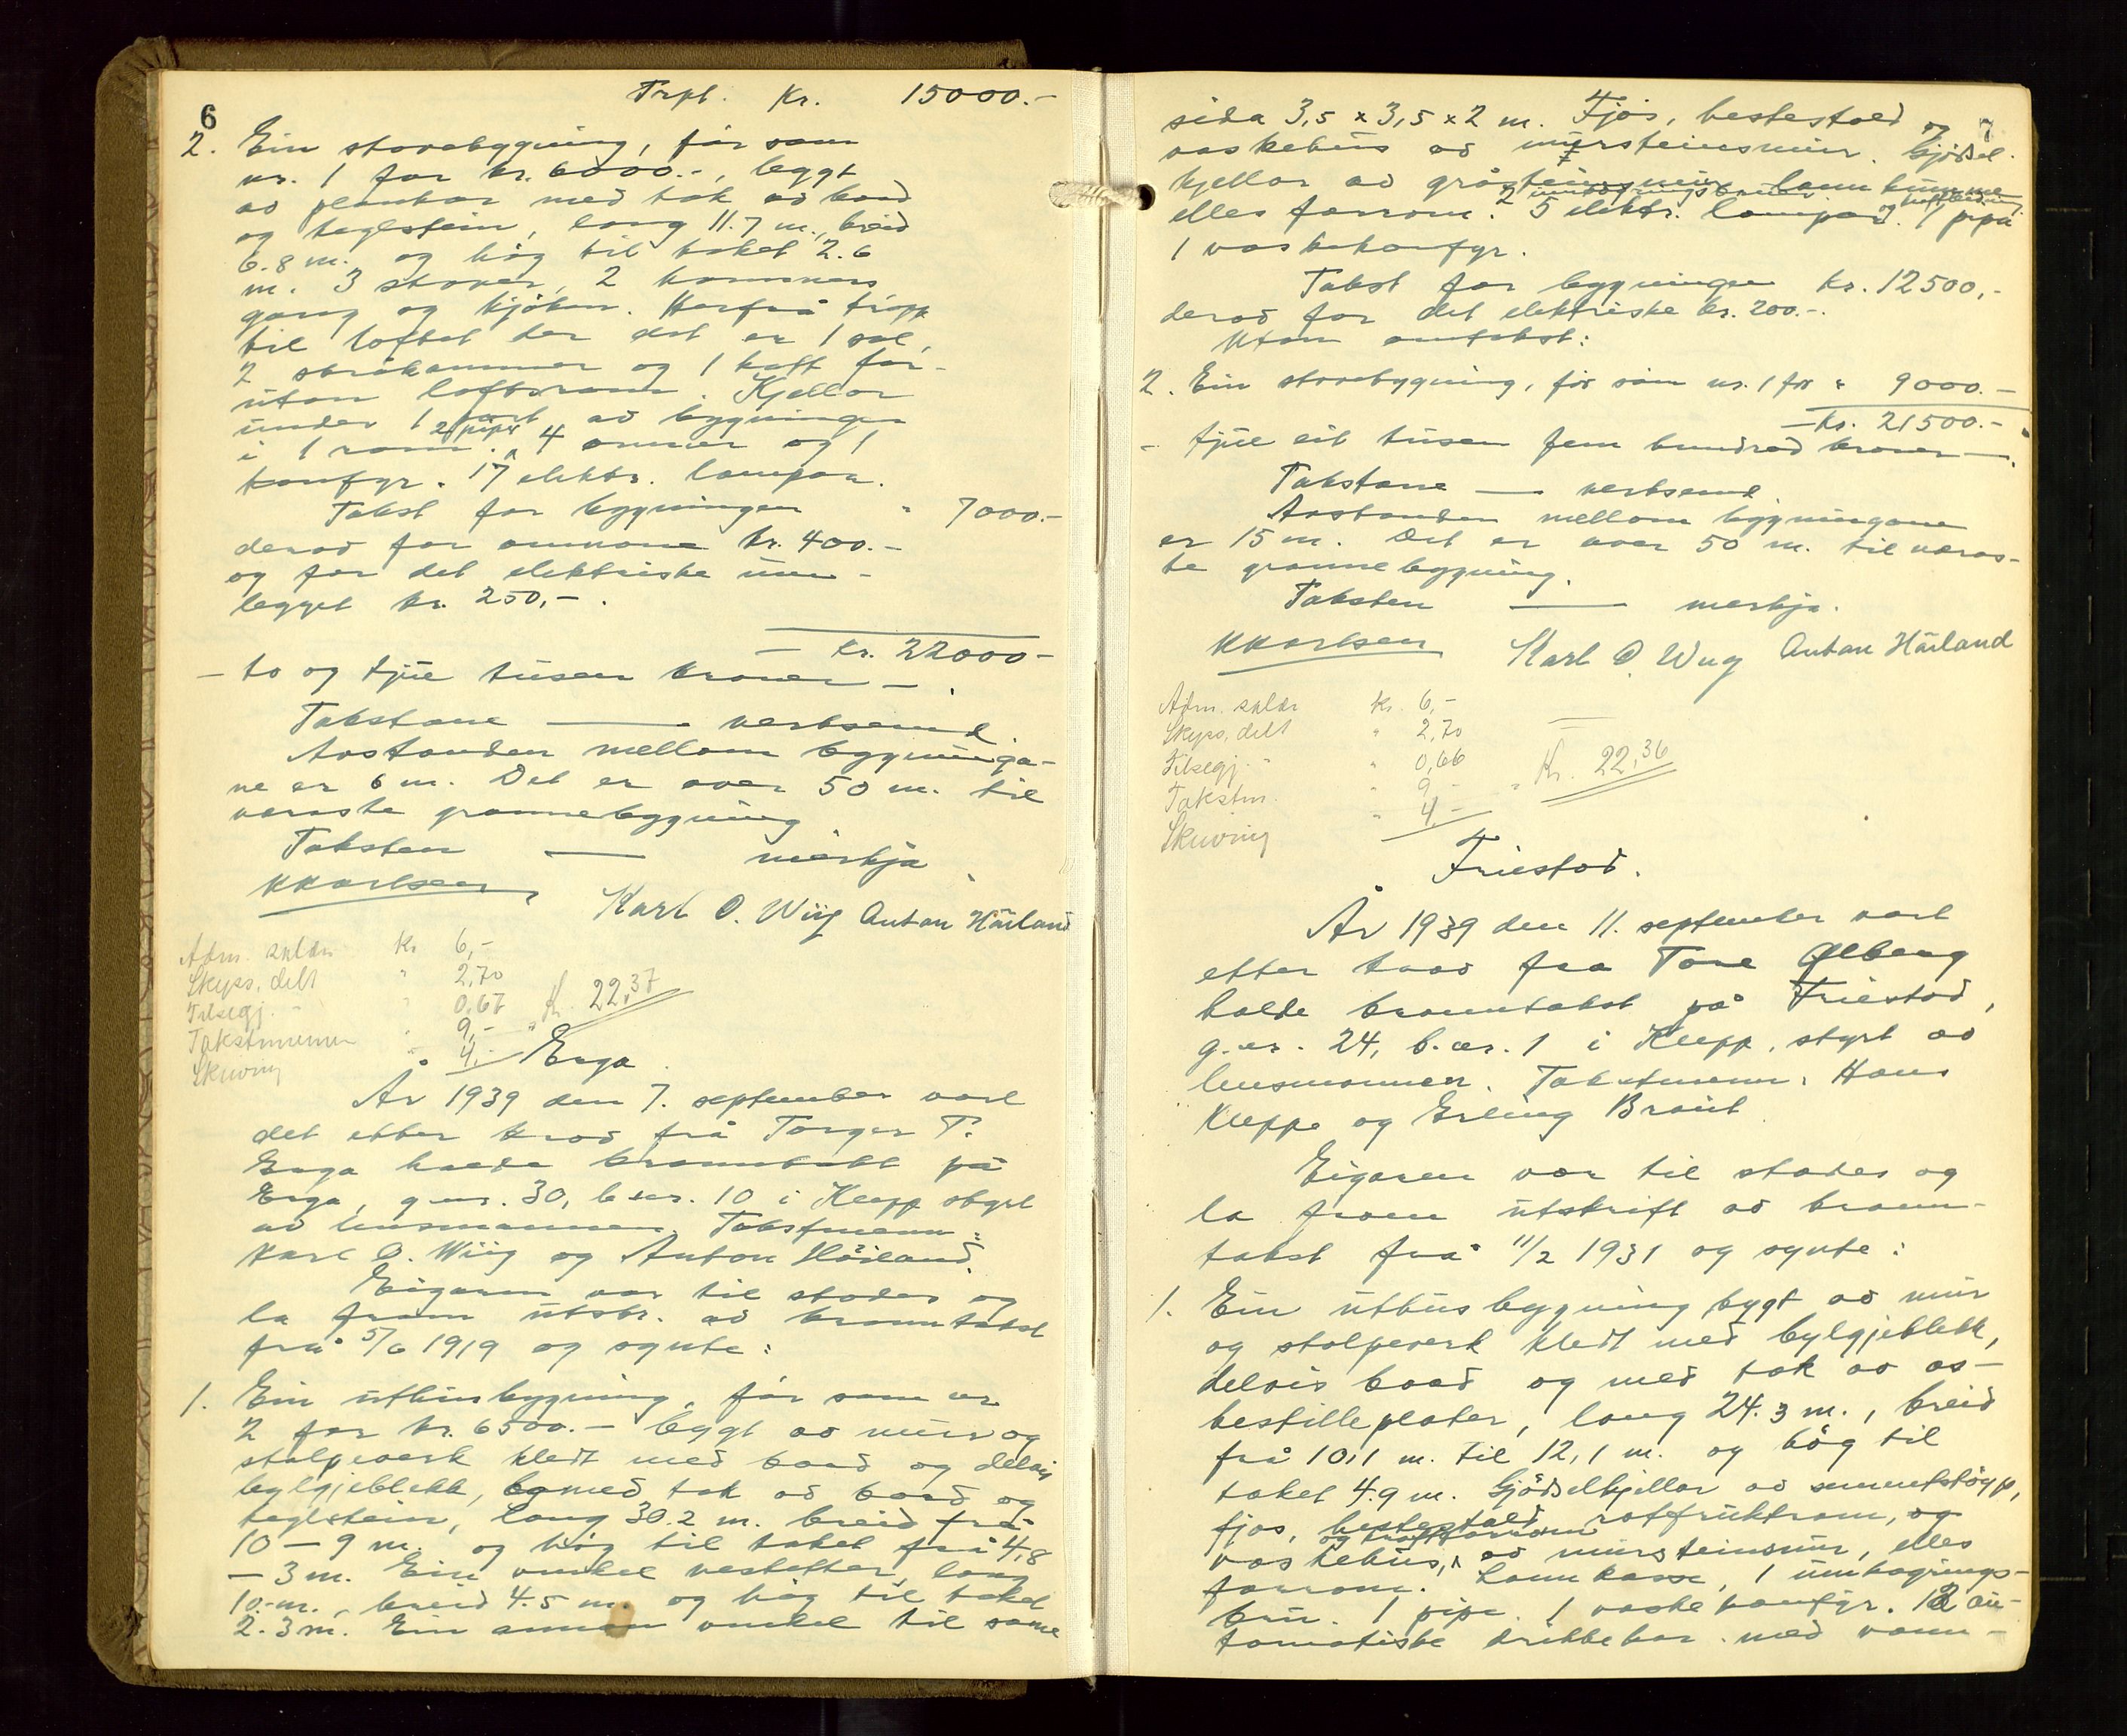 6
Trpt. Kr. 15000.-
2. Ein stovebygning, før som
nr. 1 for kr. 6000.-, bygt
av plankar med tak av bord
og teglstein, lang 11.7 m., breid
6.8 m. og høg til taket 2.6
m. 3 stover, 2 kammers
gang og kjøken. Herfrå tropp
til loftet der det er 1 sal,
2 skråkammer og 1 koft for-
utan loftsrom. Kjellar
under 1 part av bygningen
i 1 rom. 2 piper 4 omner og 1
komfyr. 17 elektr. lampor.
Takst for bygningen " 7000.-
derav for omnane kr. 400.-
og for det elektriske inn-
legget kr. 250,-.
— kr. 22000-
- to og tjue tusen kroner -.
Takstane — verksemd.
Avstanden mellom bygninga-
ne er 6 m. Det er over 50 m. til
næraste grannebygning
Taksten — merkja.
KKarlsen, Karl O. Wiig Anton Håland
Adm. sklær kr 6,-
Skyss, delt " 2,70
Tilsegj. - " 0,67 " Kr. 22,37
Takstmenn " 9,-
Skriving " 4,-
Erga.
År 1939 den 7. september vart
det etter krav frå Torger T.
Erga halde branntakst på
Erga, g.nr. 30, b.nr. 10 i Klepp styrt
av lensmannen. Takstmenn:
Karl O. Wiig og Anton Håiland.
Eigaren var til stades og
la fram utskr. av branntakst
frå 5/6 1919 og synte:
1. Ein uthusbygning, før som nr
2 for kr. 6500.- bygt av mur og
stolpeverk kledt med bord og delvis
bylgjeblekk, og med tak av bord og
teglstein, lang 30.2 m. breid frå
10-9 m. og høg til taket frå 4,8
- 3 m. Ein vinkel vestetter, lang
10.-m., breid 4.5 m. og høg til taket
2.3 m. Ein annan vinkel til same
7
sida 3,5 x 3,5 x 2 m. Fjøs, hestestall og
vaskehus av mursteinsmur. Gjødsel-
kjellar av gråsteinsmur
elles forrom. 2 5 elektr. lampor. 1 pipa
1 vaskekomfyr.
Takst for bygningen kr. 12500,-
derav for det elektriske kr. 200.-.
Utan omtakst:
2. Ein stovebygning, før som nr. 1 for " 9000.-
—Kr. 21500.-
- tjue eit tusen fem hundrad kroner —.
Takstane — verksemd
Avstanden mellom bygningane
er 15 m. Det er over 50 m. til næras-
te grannebygning.
Taksten — merkja.
KKarlsen Karl O. Wiig Anton Håland
Adm. sklær kr. 6,-
Skyss, delt " 2,70
Tilsegj. - " 0,66 Kr. 22,36
Takstm. " 9,-
Skriving " 4,-
Friestad.
År 1939 den 11. september vart
etter krav fra Tore Ølberg
halde branntakst på Friestad,
g.nr. 24, b.nr. 1 i Klepp, styrt av
lensmannen. Takstmenn: Hans
Kleppe og Erling Braut.
Eigaren var til stades og
la fram utskrift av brann-
takst frå 11/2 1931 og synte:
1. Ein uthusbygning bygt av mur
og stolpeverk kledt med bylgjeblekk,
delvis bord og med tak av as-
bestilleplater, lang 24.3 m., breid
frå 10,1 m. til 12,1 m. og høg til
taket 4.9 m. Gjødselkjellar av sementstøyp,
fjøs, hestestall, rotfruktrom, og
vaskehus, og av mursteinsmur, elles
forrom. Lannkasse, 1 innkøyrings-
bru. 1 pipe. 1 vaskekomfyr. 12 au-
tomatiske drikkekar med vann-